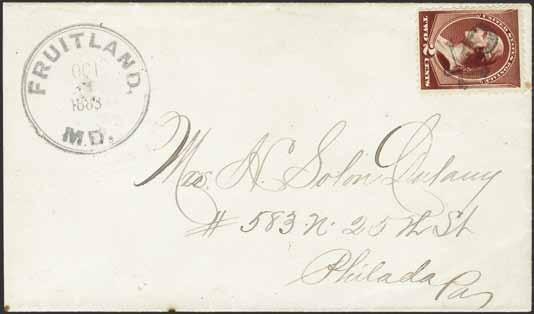 FRUITLAND,
OCT
1883
MD.
UNITED STATES POSTAGE
TWO 2 CENTS
Mrs. H. Solon Dulany
# 583 N. 25th St
Philada
Pa